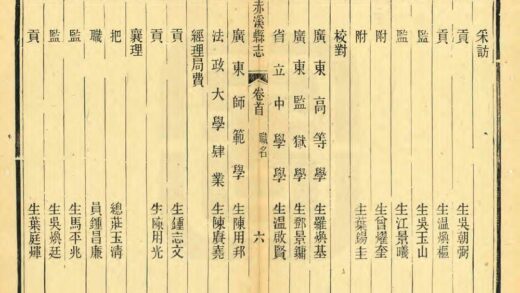 采訪
貢生吳朝弼
貢生溫煥樞
監生吳玉山
監生江景曦
附生曾耀奎
附生葉錫圭
校對
廣東高等學生羅煥基
廣東監獄學生鄧景鏞
省立中學學生溫啟賢
赤溪縣志 卷首 職名 六
廣東師範學生陳用邦
法政大學肄業生陳賡堯
經理局費
貢生鍾志文
貢生陳用光
襄理
把總莊玉清
職員鍾昌廉
監生馬丕兆
監生吳煥廷
貢生葉庭煇